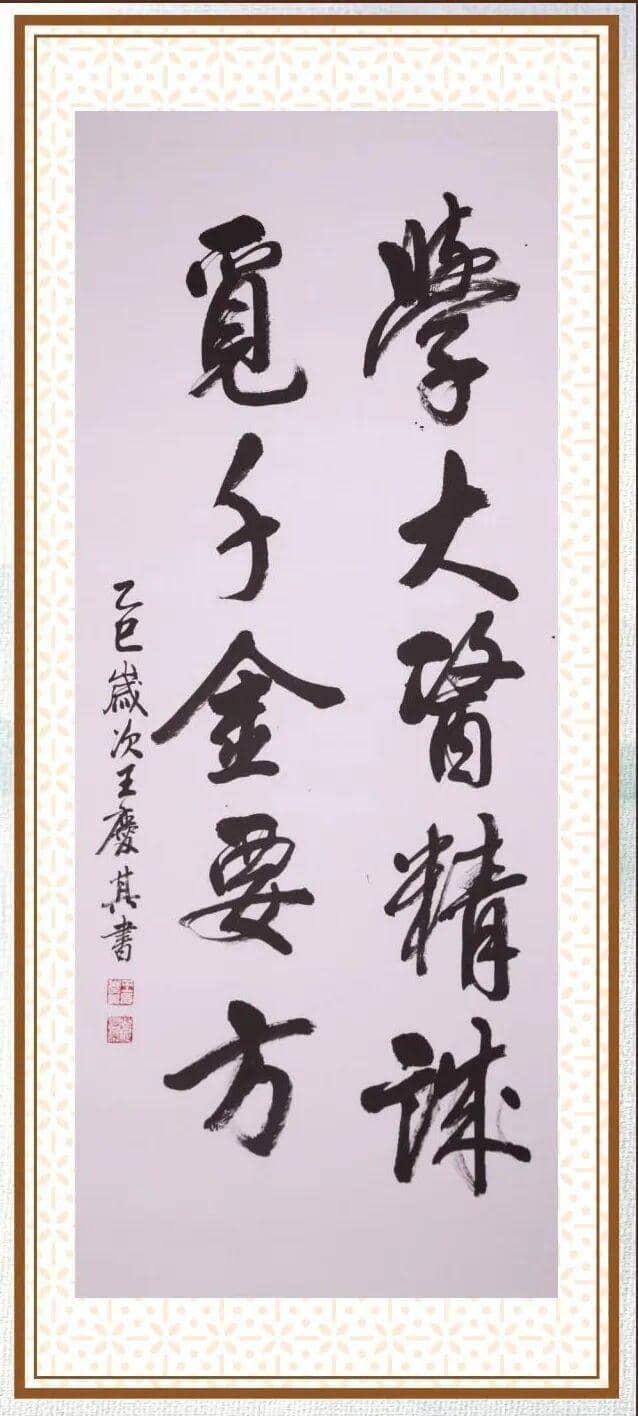 學大醫精誠
覓千金要方
乙巳歲次王慶其書